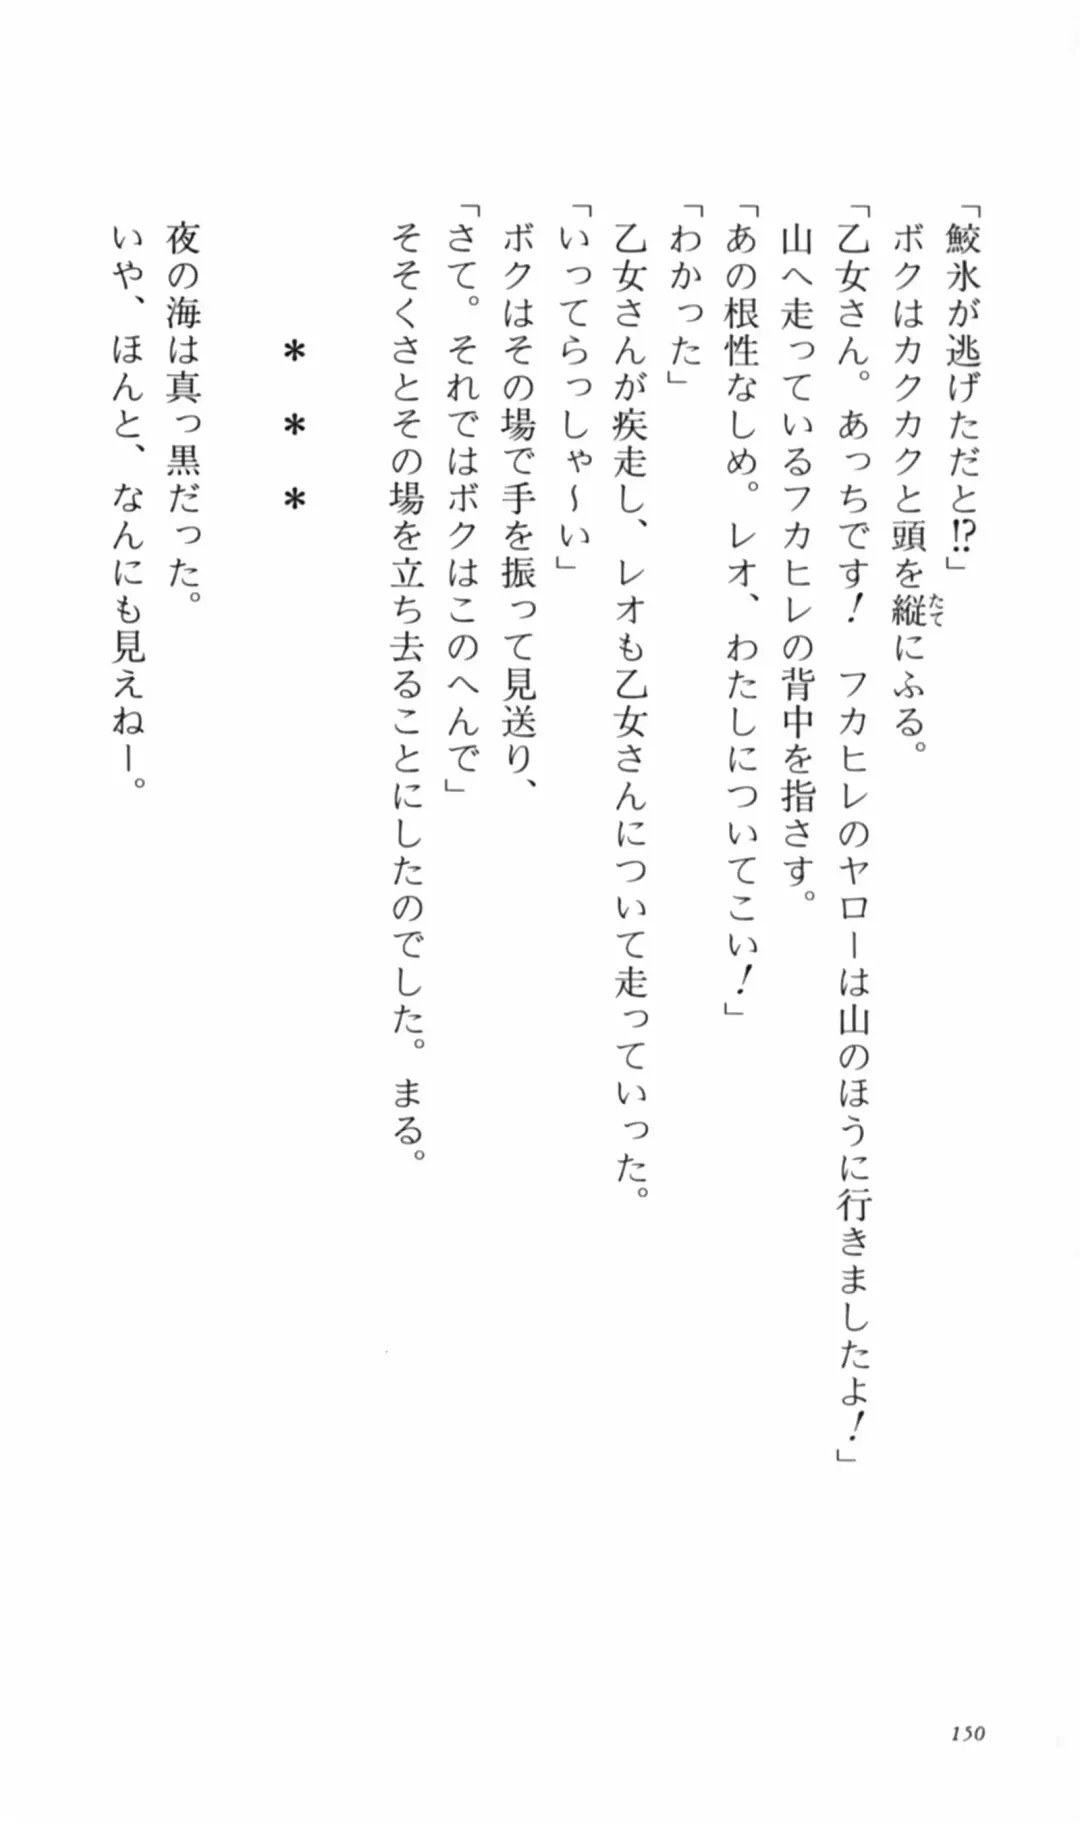 「鮫氷が逃げただと⁉」
　ボクはカクカクと頭を縦にふる。
たて
「乙女さん。あっちです！　フカヒレのヤローは山のほうに行きましたよ！」
　山へ走っているフカヒレの背中を指さす。
「あの根性なしめ。レオ、わたしについてこい！」
「わかった」
　乙女さんが疾走し、レオも乙女さんについて走っていった。
「いってらっしゃ～い」
　ボクはその場で手を振って見送り、
「さて。それではボクはこのへんで」
　そそくさとその場を立ち去ることにしたのでした。まる。
＊　＊　＊
　夜の海は真っ黒だった。
　いや、ほんと、なんにも見えねー。
150